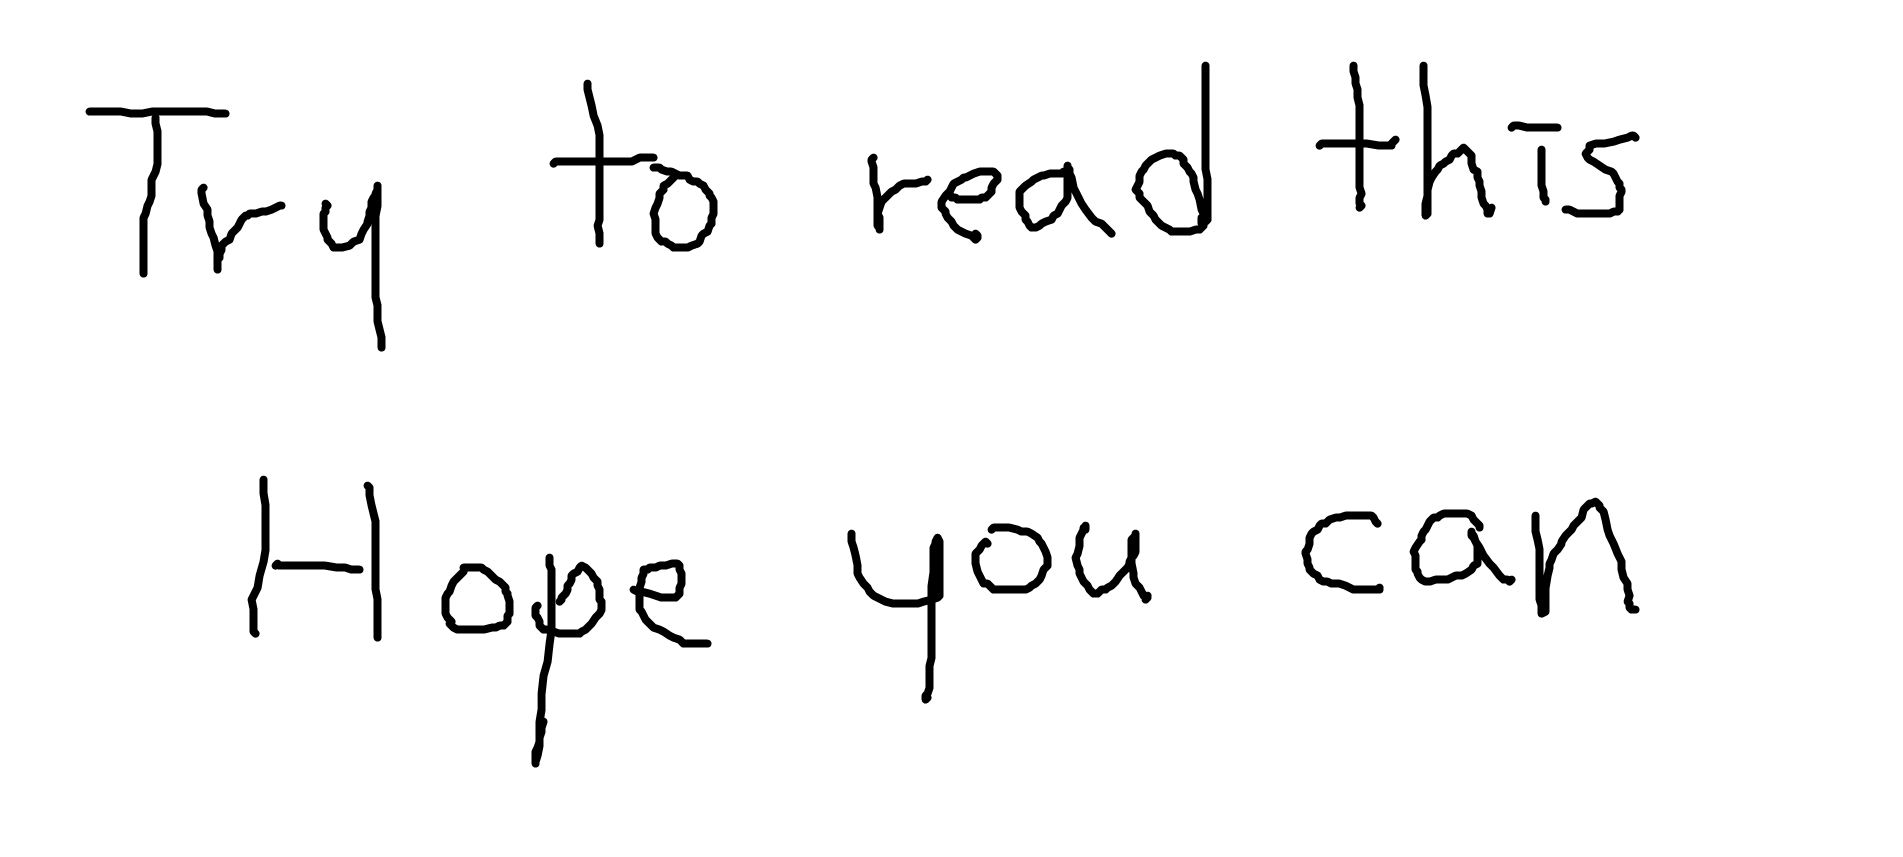 Try to read this
Hope you can